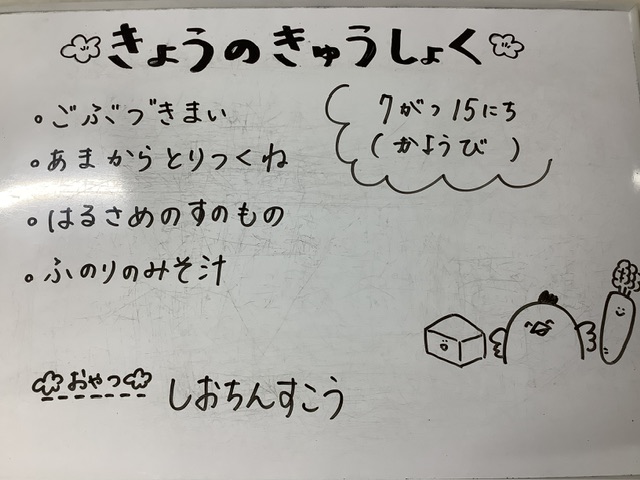 きょうのきゅうしょく
7がつ15にち
(かようび)
・ごぶづきまい
・あまからとりつくね
・はるさめのすのもの
・ふのりのみそ汁
おやつ しおちんすこう